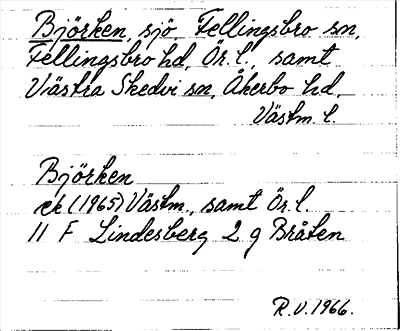 Björken, sjö, Fellingsbro sn,
Fellingsbro hd, Ör. l., samt
Västra Skedvi sn, Åkerbo hd,
Västm. l.
Björken
ek (1965) Västm., samt Ör. l.
11 F Lindesberg 2 g Bråten
R.V. 1966.